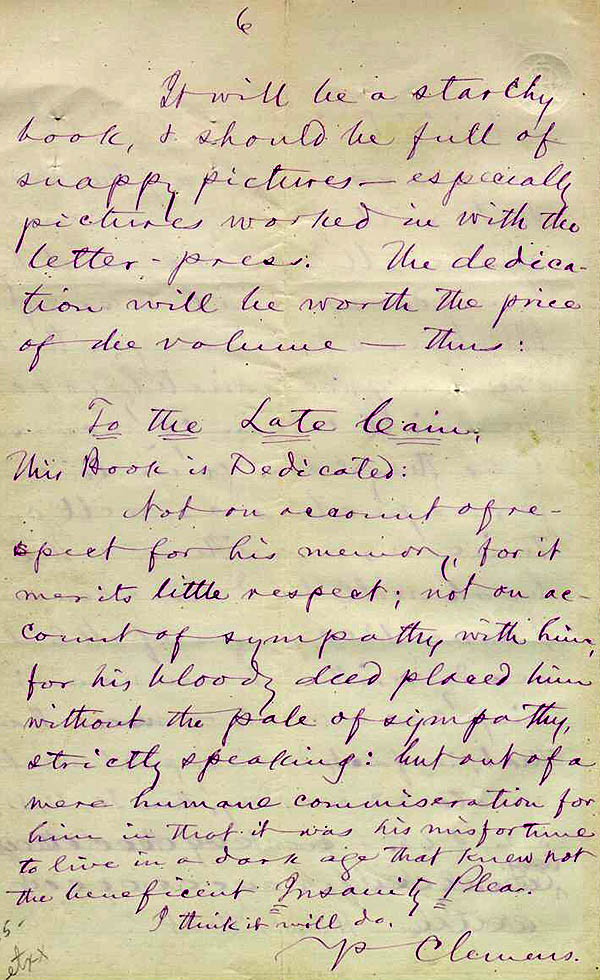 6
It will be a starchy
book, & should be full of
snappy pictures — especially
pictures worked in with the
letter-press. The dedica-
tion will be worth the price
of the volume — thus:
To the Late Cain,
This Book is Dedicated:
Not on account of re-
spect for his memory, for it
merits little respect; not on ac-
count of sympathy with him,
for his bloody deed placed him
without the pale of sympathy,
strictly speaking: but out of a
mere humane commiseration for
him in that it was his misfortune
to live in a dark age that knew not
the beneficent Insanity Plea.
I think it will do.
Yr Clemens.
5.